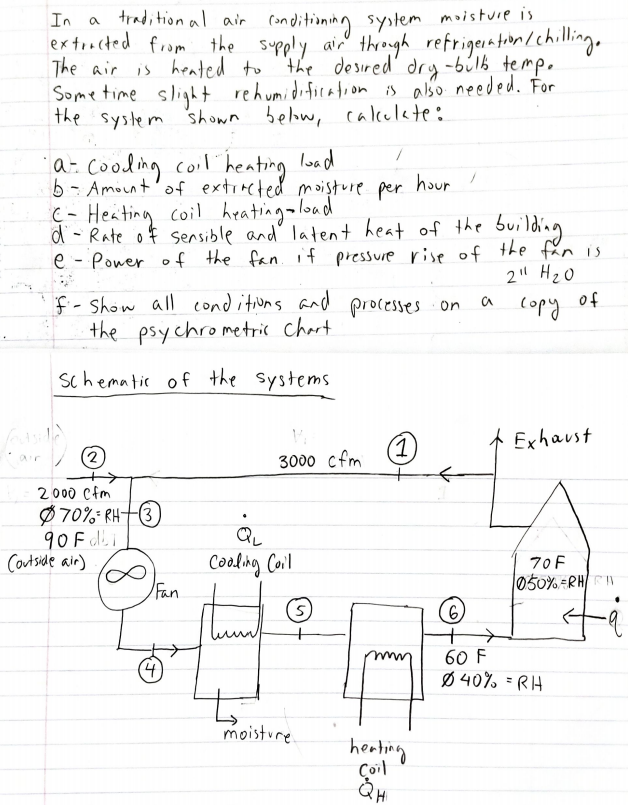 In a traditional air conditioning system moisture is
extracted from the supply air through refrigeration/chilling.
The air is heated to the desired dry-bulb temp.
Sometime slight rehumidification is also needed. For
the system shown below, calculate:
a- Cooling coil heating load
b- Amount of extracted moisture per hour
c- Heating coil heating-load
d- Rate of sensible and latent heat of the building
e- Power of the fan if pressure rise of the fan is
2" H2O
f- Show all conditions and processes on a copy of
the psychrometric chart
Schematic of the systems
Exhaust
(outside
air)
2
3000 cfm
1
2000 cfm
Ø 70% = RH
3
90 F
(outside air)
Fan
Q̇L
Cooling Coil
70 F
Ø50% = RH
q̇
5
6
4
60 F
Ø 40% = RH
moisture
heating
Coil
Q̇H